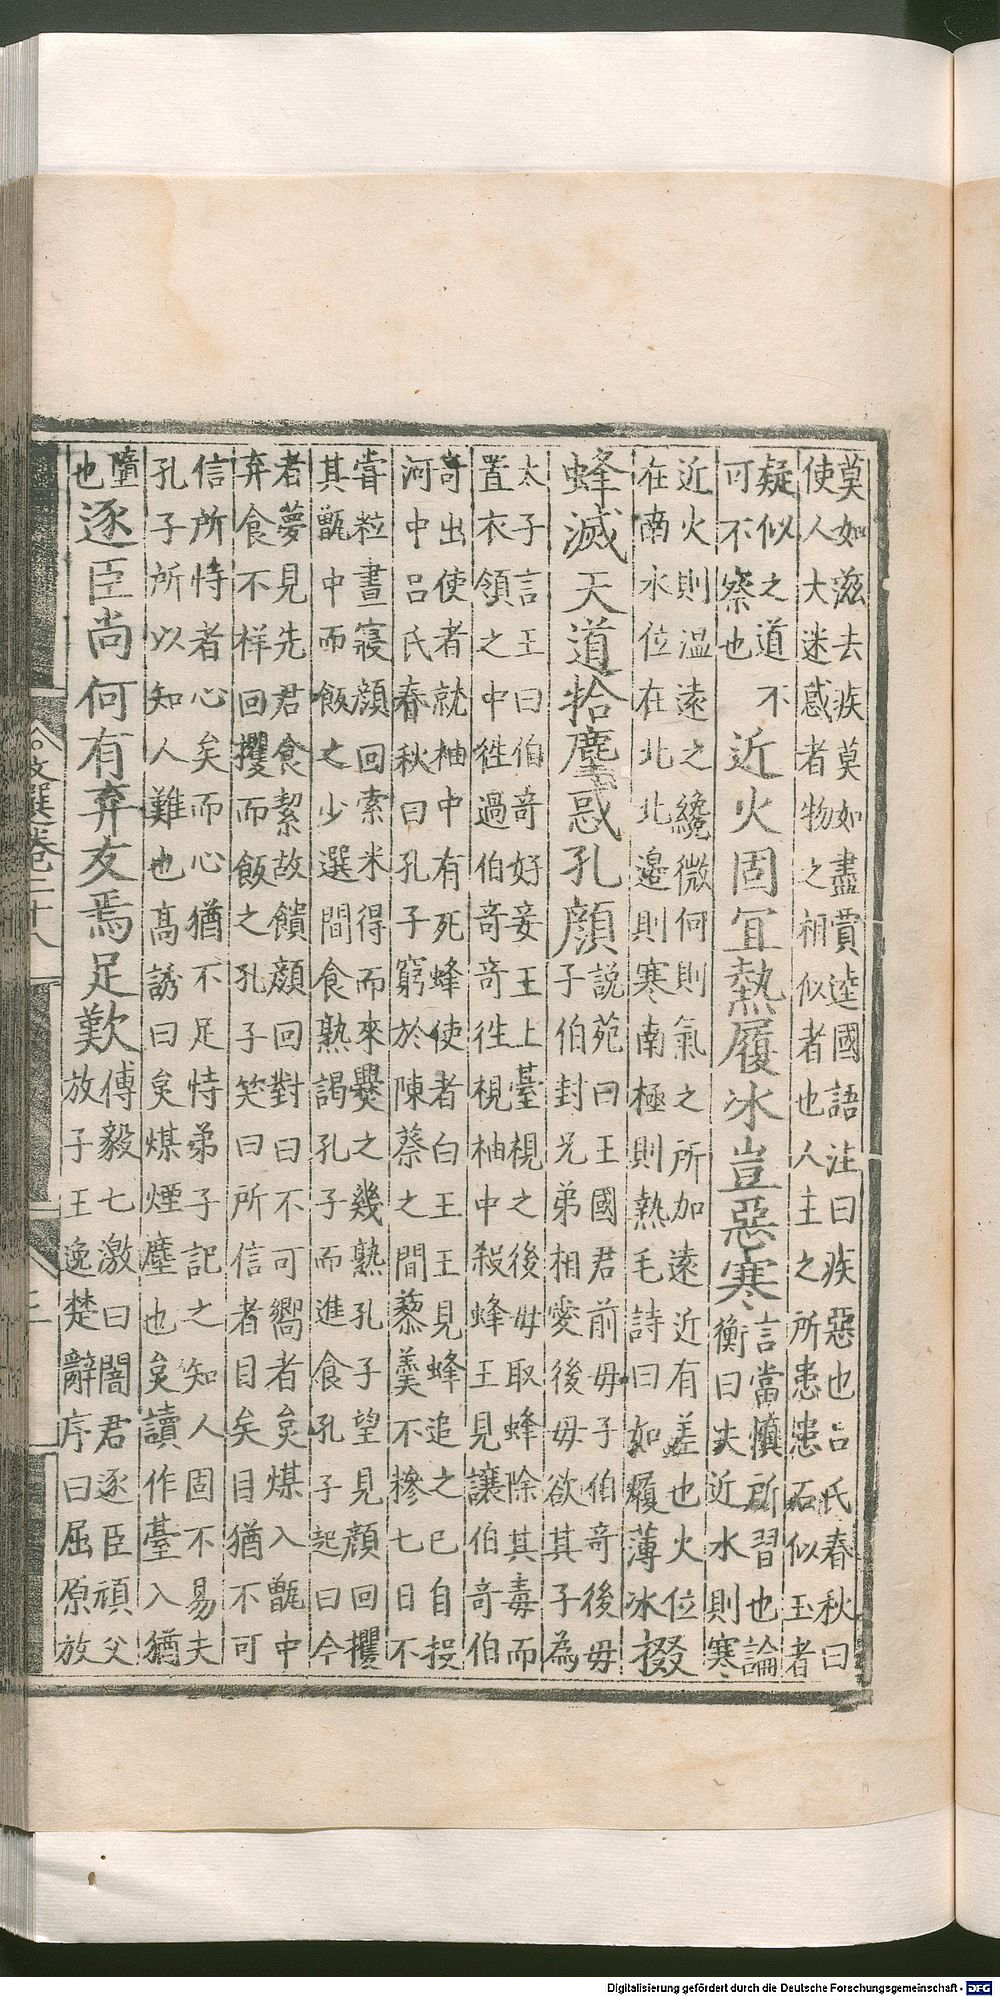 莫如滋去疾莫如盡賈逵國語注曰疾惡也呂氏春秋曰
使人大迷惑者物之相似者也人主之所患患石似玉者
疑似之道不
可不察也
近火固宜熱履冰豈惡寒
言當慎所習也論
衡曰夫近水則寒
近火則温遠之纔微何則氣之所加遠近有差也火位
在南水位在北北邉則寒南極則熱毛詩曰如履薄冰
掇
蜂滅天道拾塵惑孔顔
說苑曰王國君前母子伯奇後母
子伯封兄弟相愛後母欲其子為
太子言王曰伯奇好妾王上臺視之後母取蜂除其毒而
置衣領之中徃過伯奇奇徃視袖中殺蜂王見讓伯奇伯
奇出使者就袖中有死蜂使者白王王見蜂追之已自投
河中呂氏春秋曰孔子窮於陳蔡之間藜羹不糝七日不
甞粒晝寢顔回索米得而來爨之幾熟孔子望見顔回攫
其甑中而飯之少選間食熟謁孔子而進食孔子起曰今
者夢見先君食絜故饋顔回對曰不可嚮者炱煤入甑中
弃食不祥回攫而飯之孔子笑曰所信者目矣目猶不可
信所恃者心矣而心猶不足恃弟子記之知人固不易夫
孔子所以知人難也高誘曰炱煤煙塵也炱讀作臺入猶
墮
也
逐臣尚何有弃友焉足歎
傅毅七激曰闇君逐臣頑父
放子王逸楚辭序曰屈原放
文選卷二十八
Digitalisierung gefördert durch die Deutsche Forschungsgemeinschaft - DFG